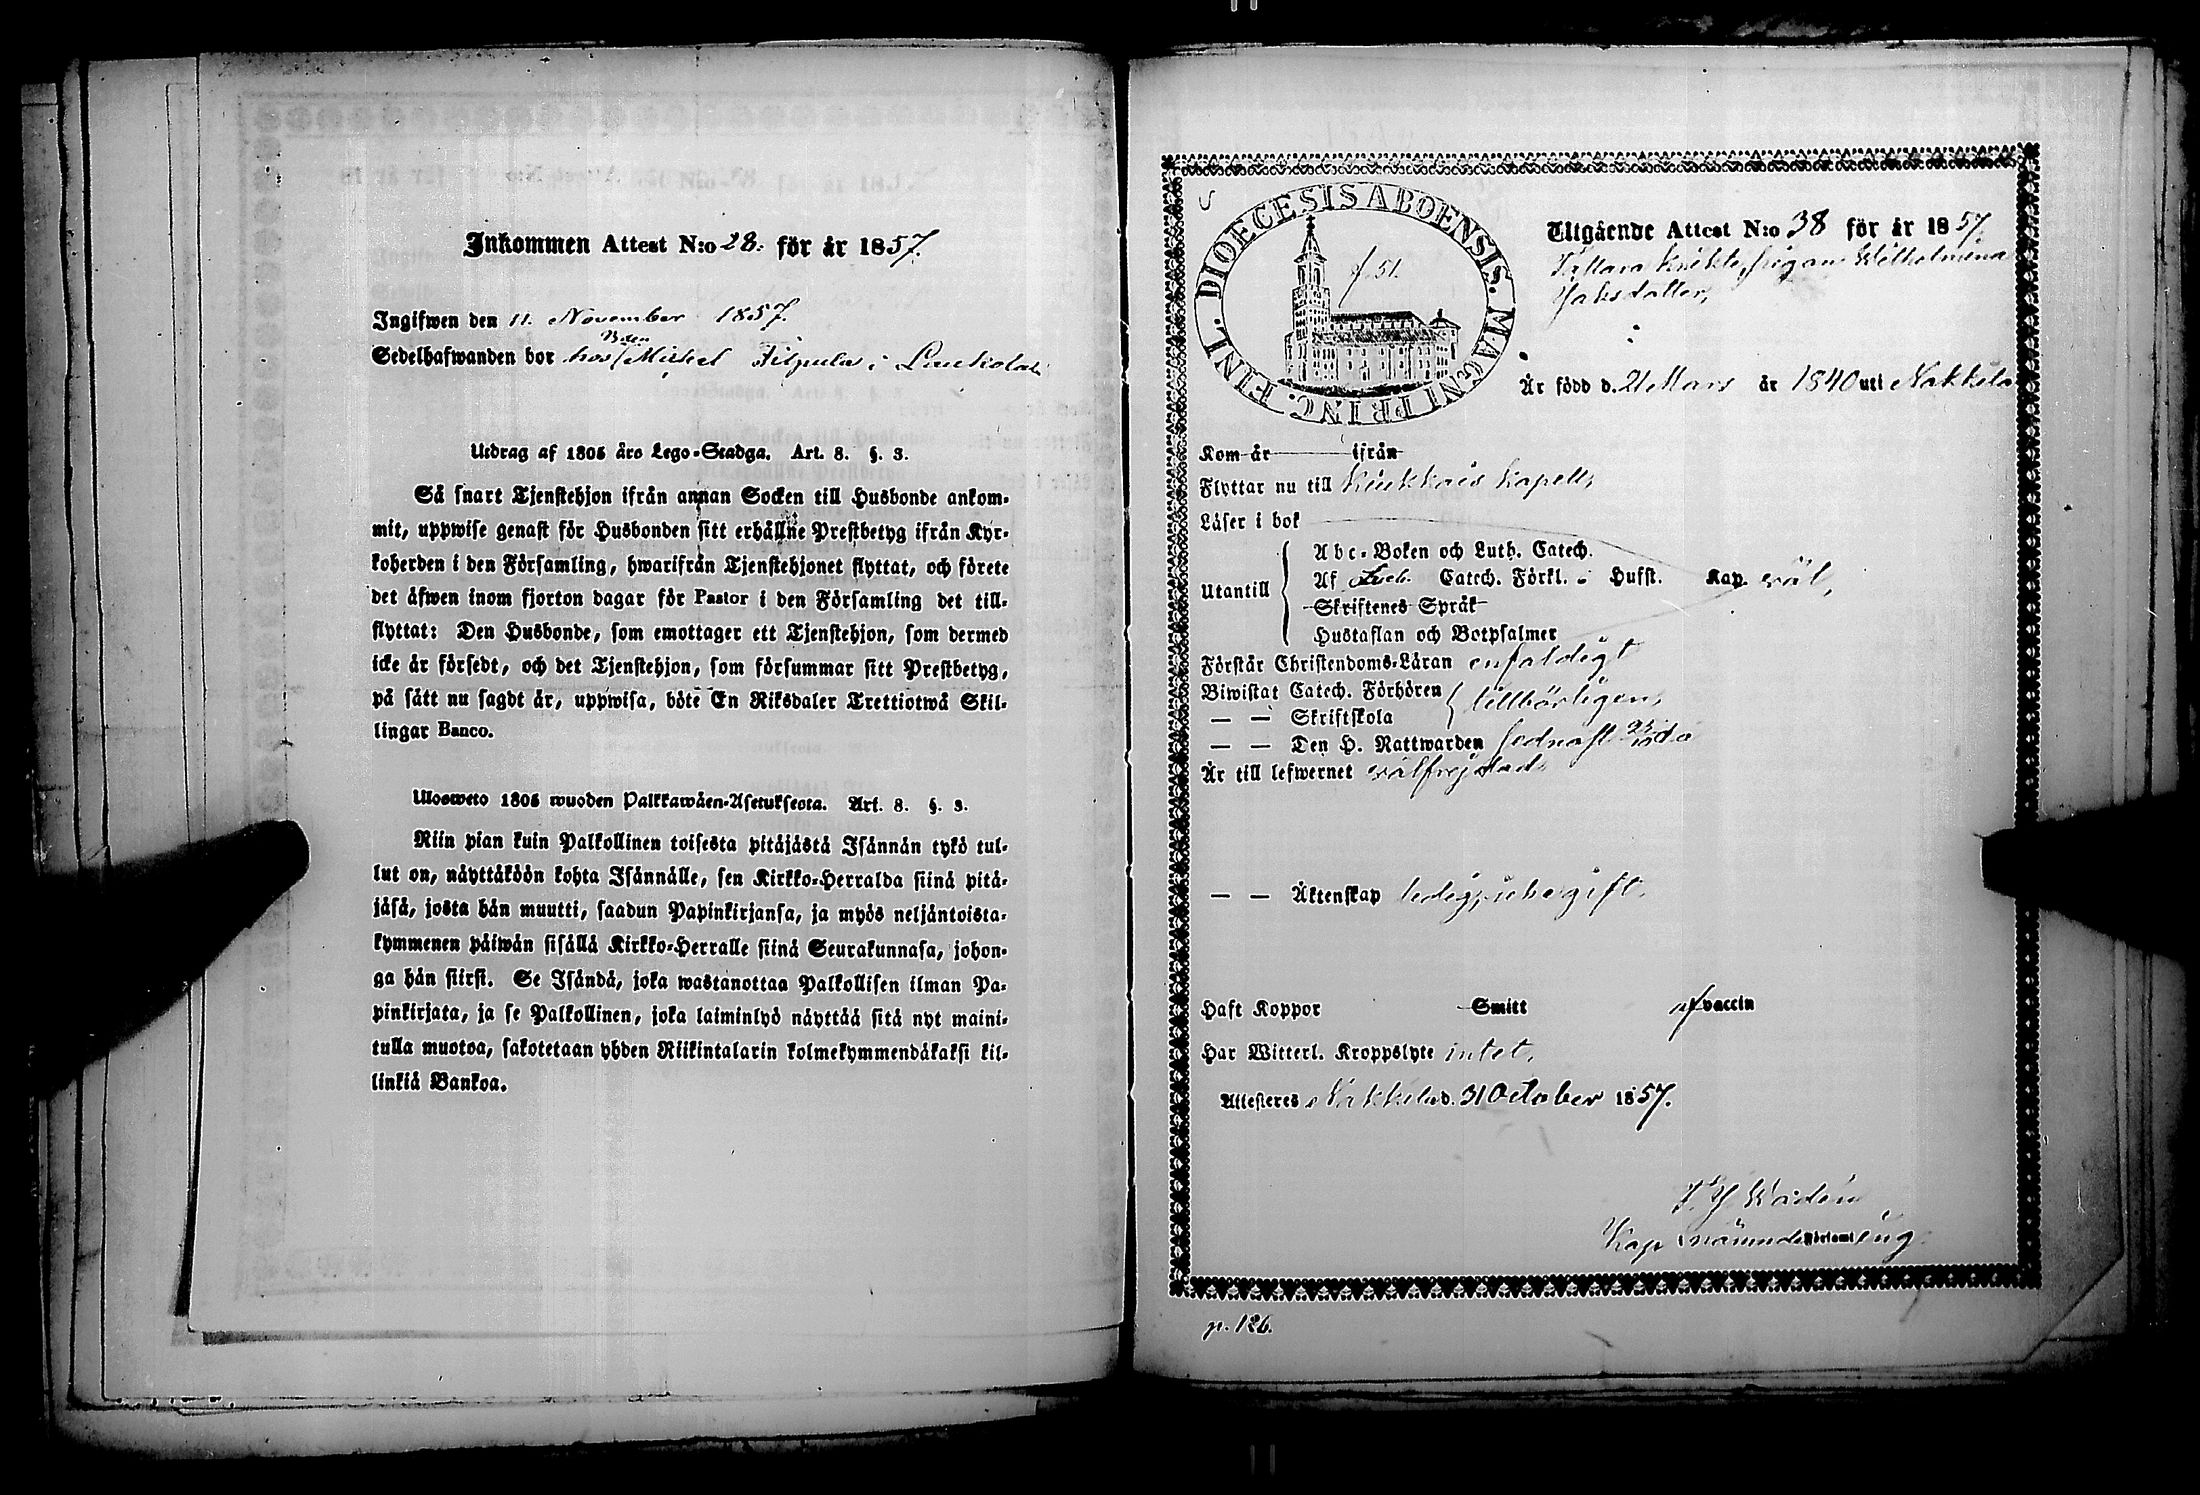 Inkommen Attest N:o 28. för år 1857.
Ingifwen den 11. November 1857.
Sedelhafwanden bor hos Bden Mickel Filpula i Laukola
Utdrag af 1805 års Lego-Stadga. Art. 8. §. 3.
Så snart Tjenstehjon ifrån annan Socken till Husbonde ankom-
mit, uppwise genast för Husbonden sitt erhållne Prestbetyg ifrån Kyr-
koherden i den Församling, hwarifrån Tjenstehjonet flyttat, och förete
det äfwen inom fjorton dagar för Pastor i den Församling det till-
flyttat: Den Husbonde, som emottager ett Tjenstehjon, som dermed
icke är försedt, och det Tjenstehjon, som försummar sitt Prestbetyg,
på sätt nu sagdt är, uppwisa, böte En Riksdaler Trettiotwå Skil-
lingar Banco.
Ulosweto 1805 wuoden Palkkawäen-Asetuksesta. Art. 8. §. 3.
Niin pian kuin Palkollinen toisesta pitäjästä Isännän tykö tul-
lut on, näyttäköön kohta Isännälle, sen Kirkko-Herralda siinä pitä-
jäsä, josta hän muutti, saadun Papinkirjansa, ja myös neljäntoista-
kymmenen päiwän sisällä Kirkko-Herralle siinä Seurakunnasa, johon-
ga hän siirsi. Se Isändä, joka wastanottaa Palkollisen ilman Pa-
pinkirjata, ja se Palkollinen, joka laiminlyö näyttää sitä nyt maini-
tulla muotoa, sakotetaan yhden Riikintalarin kolmekymmendäkaksi kil-
linkiä Bankoa.
DIOECESIS ABOENSIS. MAGNI PRINC. FINL.
f. 51.
Utgående Attest N:o 38 för år 1857.
Wilhelmina
Jaksdotter,
Är född d. 21 Mars år 1840 uti Nakkila
Kom år ifrån
Flyttar nu till Kiukkais Kapell,
Läser i bok
Utantill
Abc-Boken och Luth. Catech.
Af Sveb. Catech. Förkl. Hufst. Kap. wäl,
Skriftenes Språk
Hustaflan och Botpsalmer
Förstår Christendoms-Läran enfaldigt
Biwistat Catech. Förhören
— — Skriftskola tillbörligen,
— — Den H. Nattwarden sednast
Är till lefwernet wälfrejdad
— — Äktenskap ledig,
Haft Koppor Smitt af vaccin
Har Witterl. Kroppslyte intet,
Attesteres Nakkila d. 31 October 1857.
Kap
p. 126.